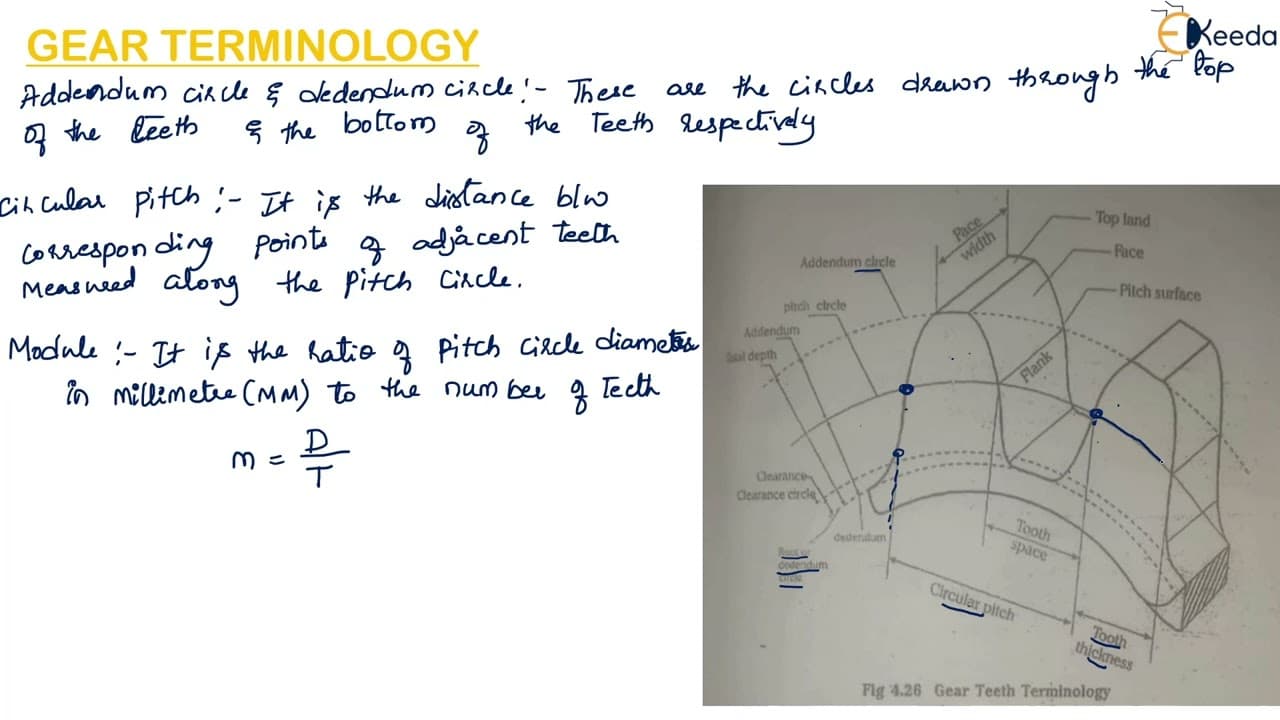 GEAR TERMINOLOGY
EKeeda
Addendum circle & dedendum circle :- These are the circles drawn through the top
of the teeth & the bottom of the Teeth respectively
Circular pitch :- It is the distance b/w
corresponding points of adjacent teeth
Measured along the pitch circle.
Module :- It is the ratio of pitch circle diameter
in millimetre (MM) to the number of Teeth
m = D
T
Face
width
Top land
Face
Addendum circle
Pitch surface
pitch circle
Addendum
depth
Flank
Clearance
Clearance circle
dedendum
Tooth
space
dedendum
circle
Circular pitch
Tooth
thickness
Fig 4.26 Gear Teeth Terminology